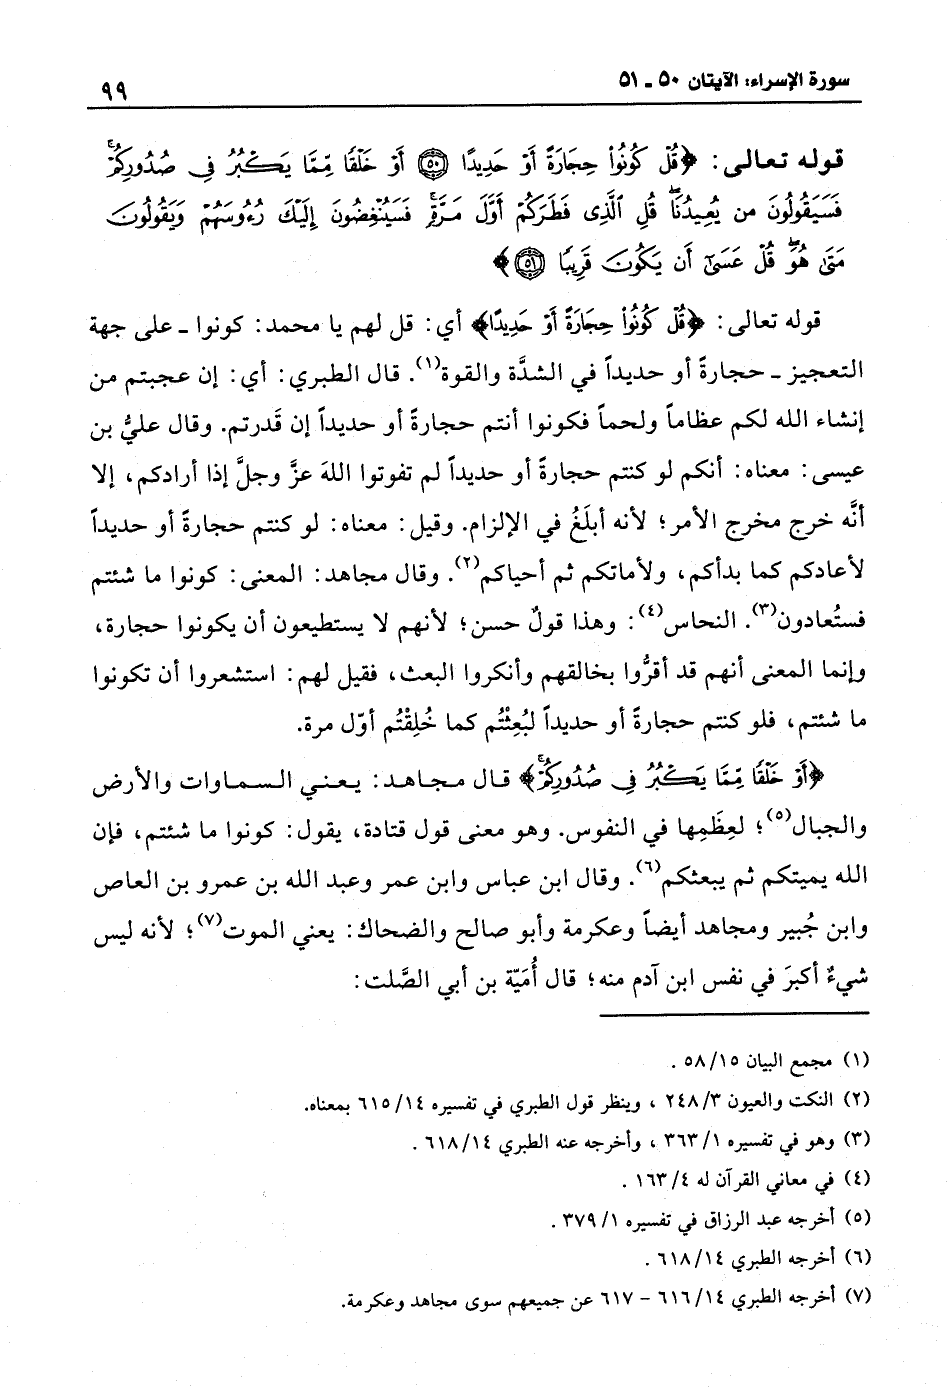 سورة الإسراء: الآيتان ٥٠ ـ ٥١
٩٩
قوله تعالى: ﴿قُلْ كُونُوا۟ حِجَارَةً أَوْ حَدِيدًا ۝٥٠ أَوْ خَلْقًا مِّمَّا يَكْبُرُ فِى صُدُورِكُمْ ۚ
فَسَيَقُولُونَ مَن يُعِيدُنَا ۖ قُلِ ٱلَّذِى فَطَرَكُمْ أَوَّلَ مَرَّةٍ ۚ فَسَيُنْغِضُونَ إِلَيْكَ رُءُوسَهُمْ وَيَقُولُونَ
مَتَىٰ هُوَ ۖ قُلْ عَسَىٰٓ أَن يَكُونَ قَرِيبًا ۝٥١﴾
قوله تعالى: ﴿قُلْ كُونُوا۟ حِجَارَةً أَوْ حَدِيدًا﴾ أي: قل لهم يا محمد: كونوا ـ على جهة
التعجيز ـ حجارةً أو حديداً في الشدَّة والقوة(١). قال الطبري: أي: إن عجبتم من
إنشاء الله لكم عظاماً ولحماً فكونوا أنتم حجارةً أو حديداً إن قَدرتم. وقال عليُّ بن
عيسى: معناه: أنكم لو كنتم حجارةً أو حديداً لم تفوتوا اللهَ عزَّ وجلَّ إذا أرادكم، إلا
أنَّه خرج مخرج الأمر؛ لأنه أبلَغُ في الإلزام. وقيل: معناه: لو كنتم حجارةً أو حديداً
لأعادكم كما بدأكم، ولأماتكم ثم أحياكم(٢). وقال مجاهد: المعنى: كونوا ما شئتم
فستُعادون(٣). النحاس(٤): وهذا قولٌ حسن؛ لأنهم لا يستطيعون أن يكونوا حجارة،
وإنما المعنى أنهم قد أقرُّوا بخالقهم وأنكروا البعث، فقيل لهم: استشعروا أن تكونوا
ما شئتم، فلو كنتم حجارةً أو حديداً لبُعِثْتُم كما خُلِقْتُم أوّل مرة.
﴿أَوْ خَلْقًا مِّمَّا يَكْبُرُ فِى صُدُورِكُمْ ۚ﴾ قال مجاهد: يعني السماوات والأرض
والجبال(٥)؛ لعِظَمِها في النفوس. وهو معنى قول قتادة، يقول: كونوا ما شئتم، فإن
الله يميتكم ثم يبعثكم(٦). وقال ابن عباس وابن عمر وعبد الله بن عمرو بن العاص
وابن جُبير ومجاهد أيضاً وعكرمة وأبو صالح والضحاك: يعني الموت(٧)؛ لأنه ليس
شيءٌ أكبرَ في نفس ابن آدم منه؛ قال أُمَيّة بن أبي الصَّلت:
(١) مجمع البيان ٥٨/١٥ .
(٢) النكت والعيون ٢٤٨/٣ ، وينظر قول الطبري في تفسيره ٦١٥/١٤ بمعناه.
(٣) وهو في تفسيره ٣٦٣/١ ، وأخرجه عنه الطبري ٦١٨/١٤ .
(٤) في معاني القرآن له ١٦٣/٤ .
(٥) أخرجه عبد الرزاق في تفسيره ٣٧٩/١ .
(٦) أخرجه الطبري ٦١٨/١٤ .
(٧) أخرجه الطبري ٦١٦/١٤ - ٦١٧ عن جميعهم سوى مجاهد وعكرمة.